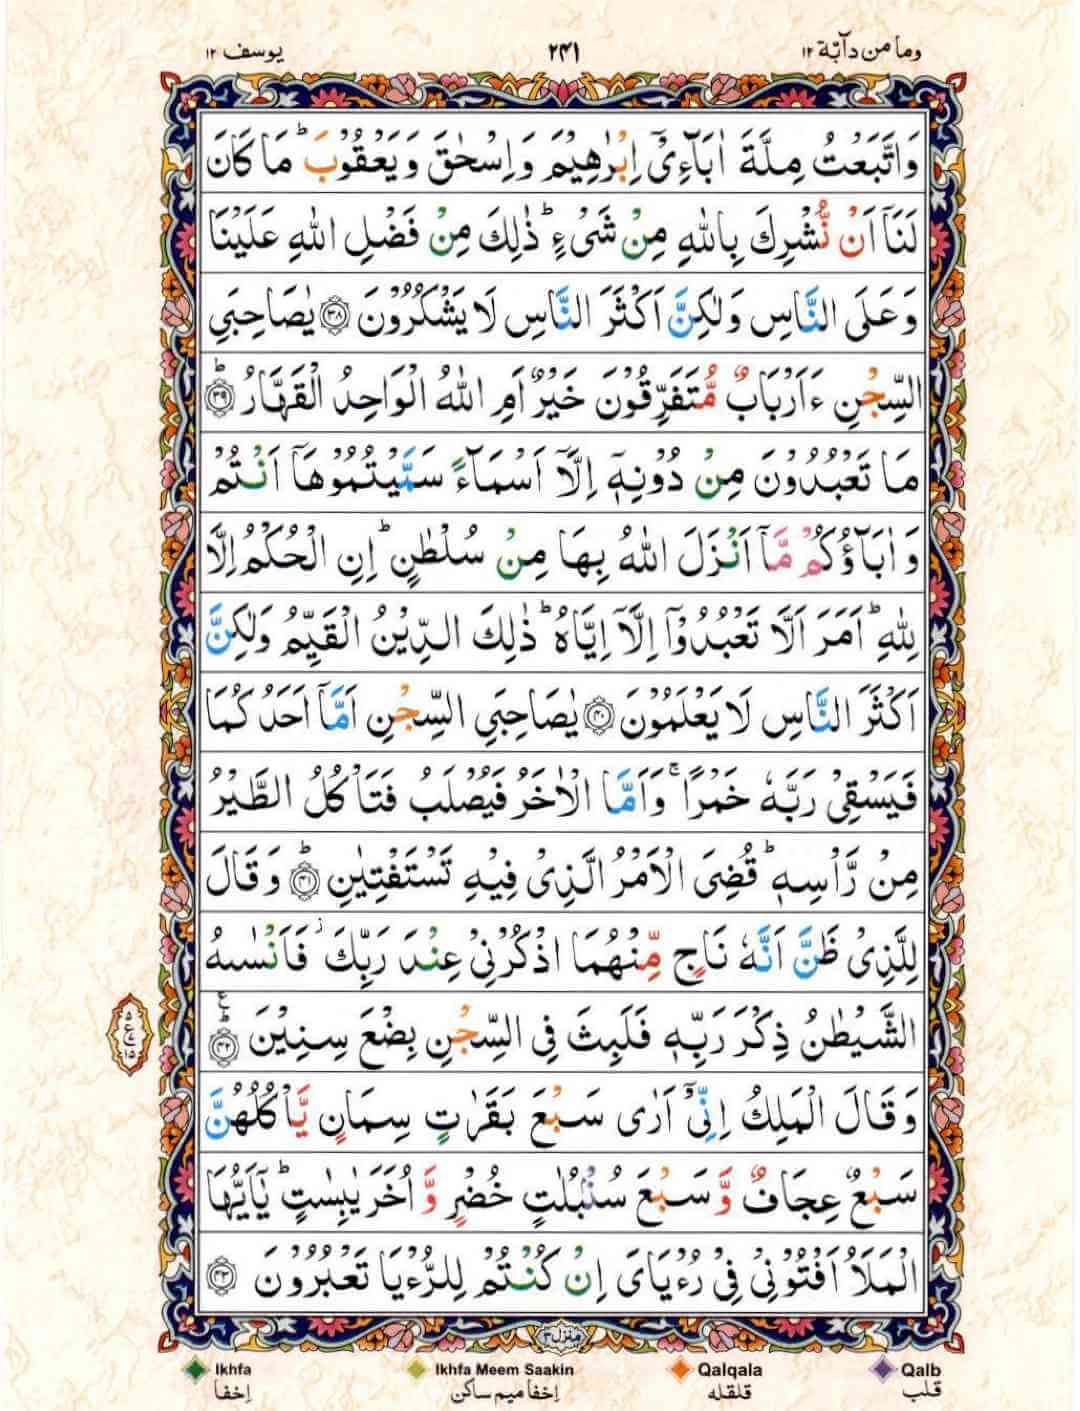 وما من دآبّة ١٢
٢٤١
يوسف ١٢
وَاتَّبَعْتُ مِلَّةَ اٰبَآءِیْۤ اِبْرٰهِیْمَ وَاِسْحٰقَ وَیَعْقُوْبَ ؕ مَا كَانَ
لَنَاۤ اَنْ نُّشْرِكَ بِاللّٰهِ مِنْ شَیْءٍ ؕ ذٰلِكَ مِنْ فَضْلِ اللّٰهِ عَلَیْنَا
وَعَلَی النَّاسِ وَلٰكِنَّ اَكْثَرَ النَّاسِ لَا یَشْكُرُوْنَ ﴿٣٨﴾ یٰصَاحِبَیِ
السِّجْنِ ءَاَرْبَابٌ مُّتَفَرِّقُوْنَ خَیْرٌ اَمِ اللّٰهُ الْوَاحِدُ الْقَهَّارُ ؕ ﴿٣٩﴾
مَا تَعْبُدُوْنَ مِنْ دُوْنِهٖۤ اِلَّاۤ اَسْمَآءً سَمَّیْتُمُوْهَاۤ اَنْتُمْ
وَاٰبَآؤُكُمْ مَّاۤ اَنْزَلَ اللّٰهُ بِهَا مِنْ سُلْطٰنٍ ؕ اِنِ الْحُكْمُ اِلَّا
لِلّٰهِ ؕ اَمَرَ اَلَّا تَعْبُدُوْۤا اِلَّاۤ اِیَّاهُ ؕ ذٰلِكَ الدِّیْنُ الْقَیِّمُ وَلٰكِنَّ
اَكْثَرَ النَّاسِ لَا یَعْلَمُوْنَ ﴿٤٠﴾ یٰصَاحِبَیِ السِّجْنِ اَمَّاۤ اَحَدُكُمَا
فَیَسْقِیْ رَبَّهٗ خَمْرًا ۚ وَاَمَّا الْاٰخَرُ فَیُصْلَبُ فَتَاْكُلُ الطَّیْرُ
مِنْ رَّاْسِهٖ ؕ قُضِیَ الْاَمْرُ الَّذِیْ فِیْهِ تَسْتَفْتِیٰنِ ؕ ﴿٤١﴾ وَقَالَ
لِلَّذِیْ ظَنَّ اَنَّهٗ نَاجٍ مِّنْهُمَا اذْكُرْنِیْ عِنْدَ رَبِّكَ ؗ فَاَنْسٰىهُ
الشَّیْطٰنُ ذِكْرَ رَبِّهٖ فَلَبِثَ فِی السِّجْنِ بِضْعَ سِنِیْنَ ؕ ﴿٤٢﴾ ع
٥
ع
٧
١٥
وَقَالَ الْمَلِكُ اِنِّیْۤ اَرٰی سَبْعَ بَقَرٰتٍ سِمَانٍ یَّاْكُلُهُنَّ
سَبْعٌ عِجَافٌ وَّسَبْعَ سُنْۢبُلٰتٍ خُضْرٍ وَّاُخَرَ یٰبِسٰتٍ ؕ یٰۤاَیُّهَا
الْمَلَاُ اَفْتُوْنِیْ فِیْ رُءْیَایَ اِنْ كُنْتُمْ لِلرُّءْیَا تَعْبُرُوْنَ ﴿٤٣﴾
منزل ٣
Ikhfa
Ikhfa Meem Saakin
Qalqala
Qalb
اِخفا
اِخفا میم ساکن
قلقله
قلب